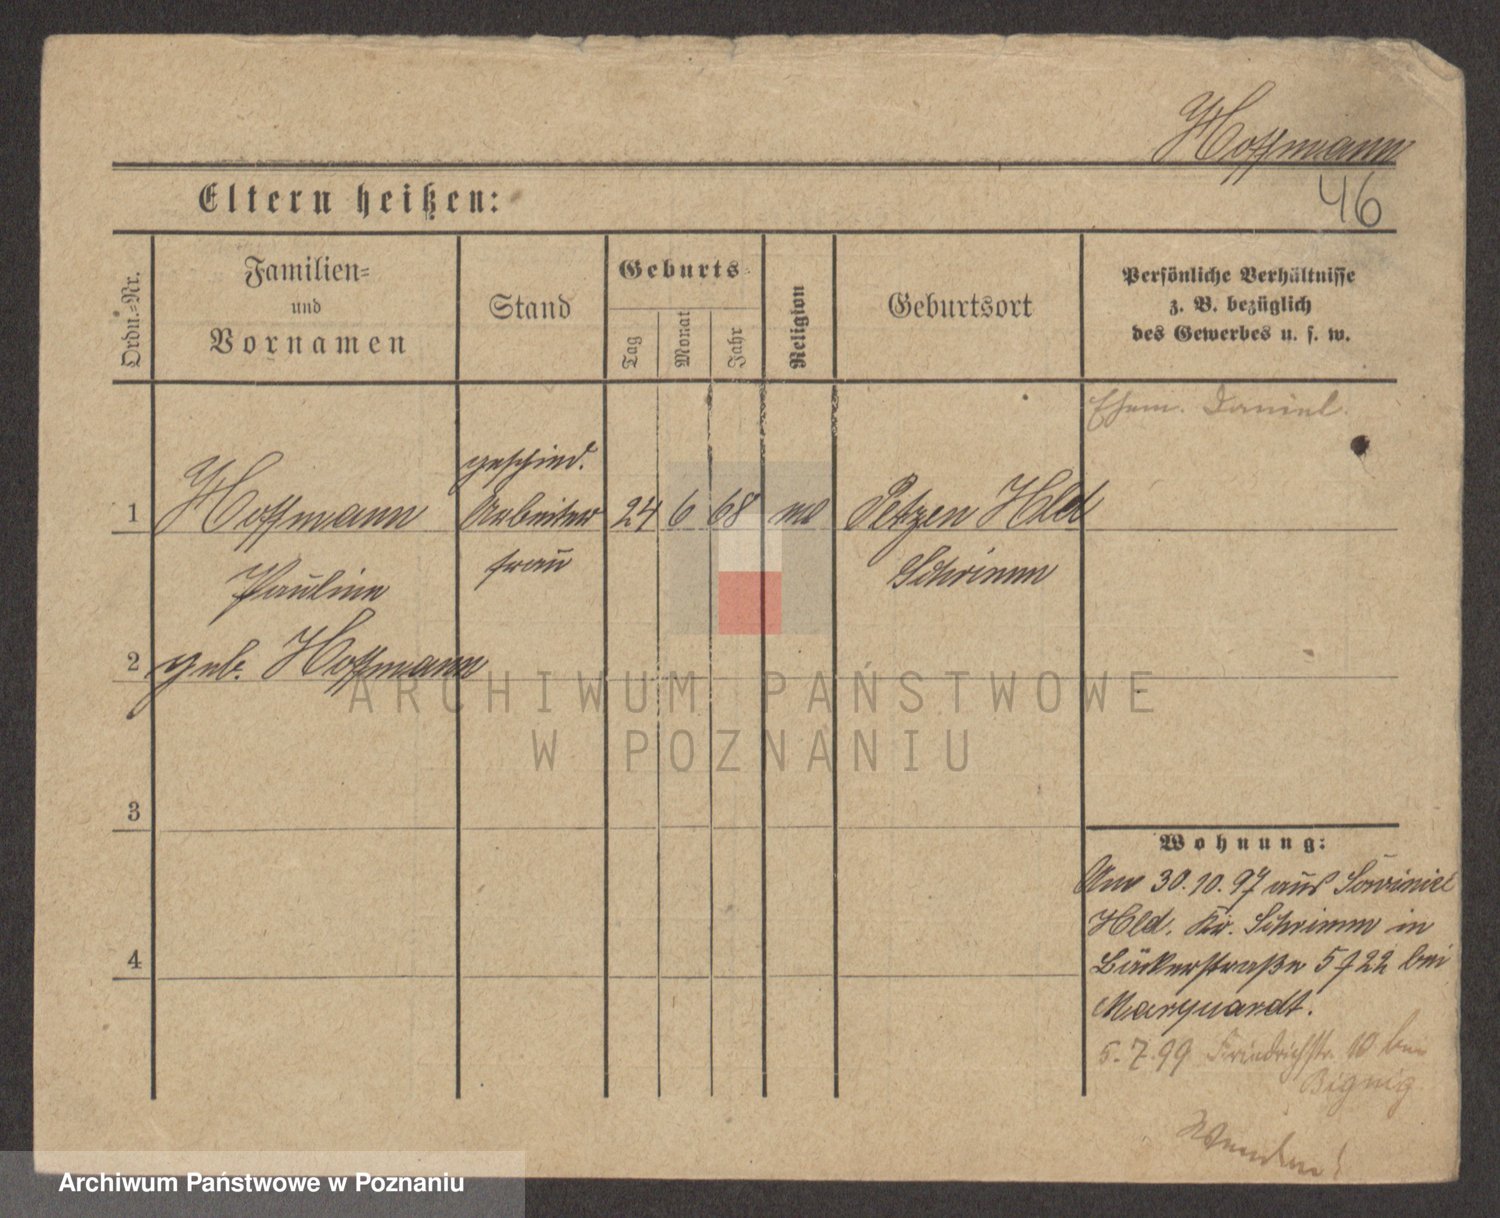 Hoffmann
46
Eltern heißen:
Ordn.=Nr.
Familien=
und
Vornamen
Stand
Geburts-
Tag
Monat
Jahr
Religion
Geburtsort
Persönliche Verhältnisse
z. B. bezüglich
des Gewerbes u. s. w.
Ehem. Daniel.
geschied.
1 Hoffmann Arbeiter 24 6 68 Petzen Hld
Pauline frau Schrimm
2 geb. Hoffmann
ARCHIWUM PAŃSTWOWE
W POZNANIU
3
Wohnung:
Anv 30.10.97 aus
Hld. Kr. Schrimm in
4 Bäckerstraße 22 bei
Marquardt.
5.7.99 Friedrichstr. 10 bei
Wenden!
Archiwum Państwowe w Poznaniu